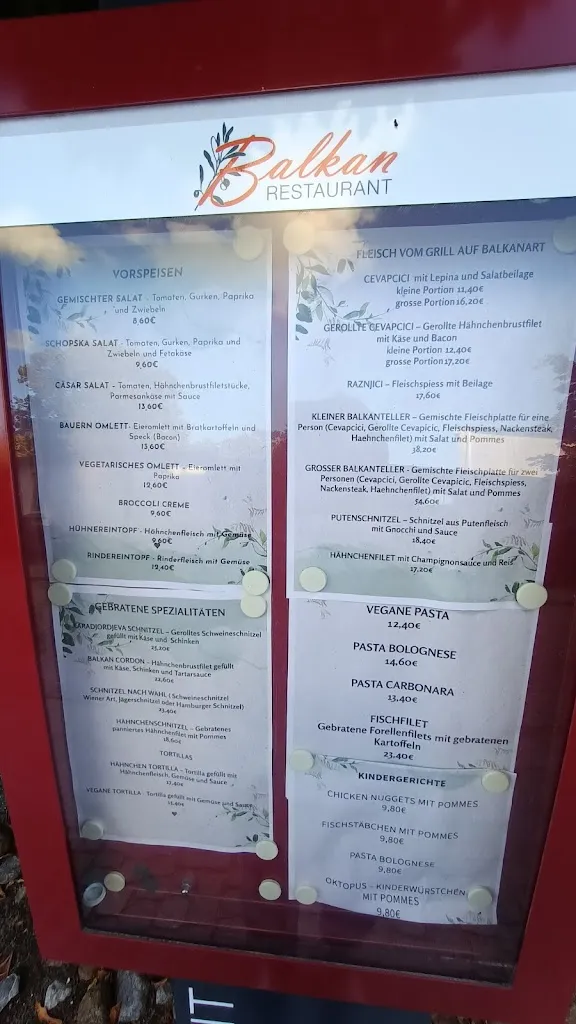 Balkan
RESTAURANT
VORSPEISEN
GEMISCHTER SALAT - Tomaten, Gurken, Paprika
und Zwiebeln
8,60€
SCHOPSKA SALAT - Tomaten, Gurken, Paprika und
Zwiebeln und Fetakäse
9,60€
CÄSAR SALAT - Tomaten, Hähnchenbrustfiletstücke,
Parmesankäse mit Sauce
13,60€
BAUERN OMLETT- Eieromlett mit Bratkartoffeln und
Speck (Bacon)
13,60€
VEGETARISCHES OMLETT - Eieromlett mit
Paprika
12,60€
BROCCOLI CREME
9,60€
HÜHNEREINTOPF - Hähnchenfleisch mit Gemüse
9,60€
RINDEREINTOPF - Rinderfleisch mit Gemüse
12,40€
GEBRATENE SPEZIALITÄTEN
KARADJORDJEVA SCHNITZEL – Gerolltes Schweineschnitzel
gefüllt mit Käse und Schinken
23,20€
BALKAN CORDON - Hähnchenbrustfilet gefüllt
mit Käse, Schinken und Tartarsauce
22,60€
SCHNITZEL NACH WAHL ( Schweineschnitzel
Wiener Art, Jägerschnitzel oder Hamburger Schnitzel)
23,40€
HÄHNCHENSCHNITZEL – Gebratenes
paniertes Hähnchenfilet mit Pommes
18,60€
TORTILLAS
HÄHNCHEN TORTILLA – Tortilla gefüllt mit
Hähnchenfleisch, Gemüse und Sauce
13,40€
VEGANE TORTILLA - Tortilla gefüllt mit Gemüse und Sauce
12,40€
FLEISCH VOM GRILL AUF BALKANART
CEVAPCICI mit Lepina und Salatbeilage
kleine Portion 11,40€
grosse Portion 16,20€
GEROLLTE CEVAPCICI – Gerollte Hähnchenbrustfilet
mit Käse und Bacon
kleine Portion 12,40€
grosse Portion 17,20€
RAZNJICI – Fleischspiess mit Beilage
17,60€
KLEINER BALKANTELLER – Gemischte Fleischplatte für eine
Person (Cevapcici, Gerollte Cevapicic, Fleischspiess, Nackensteak,
Haehnchenfilet) mit Salat und Pommes
38,20€
GROSSER BALKANTELLER - Gemischte Fleischplatte für zwei
Personen (Cevapcici, Gerollte Cevapicic, Fleischspiess,
Nackensteak, Haehnchenfilet) mit Salat und Pommes
54,60€
PUTENSCHNITZEL – Schnitzel aus Putenfleisch
mit Gnocchi und Sauce
18,40€
HÄHNCHENFILET mit Champignonsauce und Reis
17,20€
VEGANE PASTA
12,40€
PASTA BOLOGNESE
14,60€
PASTA CARBONARA
13,40€
FISCHFILET
Gebratene Forellenfilets mit gebratenen
Kartoffeln
23,40€
KINDERGERICHTE
CHICKEN NUGGETS MIT POMMES
9,80€
FISCHSTÄBCHEN MIT POMMES
9,80€
PASTA BOLOGNESE
9,80€
OKTOPUS – KINDERWÜRSTCHEN
MIT POMMES
9,80€